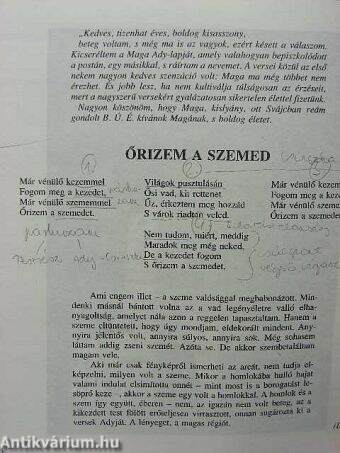 „Kedves, tizenhat éves, boldog kisasszony,
beteg voltam, s még ma is az vagyok, ezért késett a válaszom.
Kicseréltem a Maga Ady-lapját, amely valahogyan bepiszkolódott
a postán, egy másikkal, s ráírtam a nevemet. A versei közül az első
nekem nagyon kedves szenzáció volt: Maga ma még többet nem
érezhet. És jobb lesz, ha nem kultiválja túlságosan az érzéseit,
mert a nagyszerű versekért gyalázatosan sikertelen élettel fizetünk.
Nagyon köszönöm, hogy Maga, kislyány, ott Svájcban reám
gondolt B. Ú. É. kívánok Magának, s boldog életet.
ŐRIZEM A SZEMED
Már vénülő kezemmel
Fogom meg a kezedet,
Már vénülő szememmel
Őrizem a szemedet.
Világok pusztulásán
Ősi vad, kit rettenet
Űz, érkeztem meg hozzád
S várok riadtan veled.
Már vénülő kezemmel
Fogom meg a kezedet,
Már vénülő szemem
Őrizem a szemedet.
Nem tudom, miért, meddig
Maradok meg még neked,
De a kezedet fogom
S őrizem a szemedet.
Ami engem illet – a szeme valósággal megbabonázott. Minden-
denki másnál bántott volna az a vad legényéletre valló elha-
nyagoltság, amelyet nála azon a reggelen tapasztaltam. Hanem a
szeme eltüntetett, hogy úgy mondjam, eldekorált mindent. Any-
nyira jelentős volt, annyira súlyos, annyira sok. Még sohasem
láttam addig zseni szemét. Azóta se. De akkor szembetaláltam
magam vele.
Aki már csak fényképről ismerheti az arcát, nem tudja el-
képzelni, milyen volt a szeme. Mikor a homlokába hulló hajat
valami indulat elsimította onnét – mint most is a borogatást le-
söprő keze –, akkor a szeme egy volt a homlokkal. A homlok és a
szem így együtt, éberen – nem, az igazin nem volt beteg, az a
kikezdett test fölött erőteljesen virrasztott, onnan sugározta ki a
versek Adyját. A lényeget, a magas régiót.
antikvárium.hu